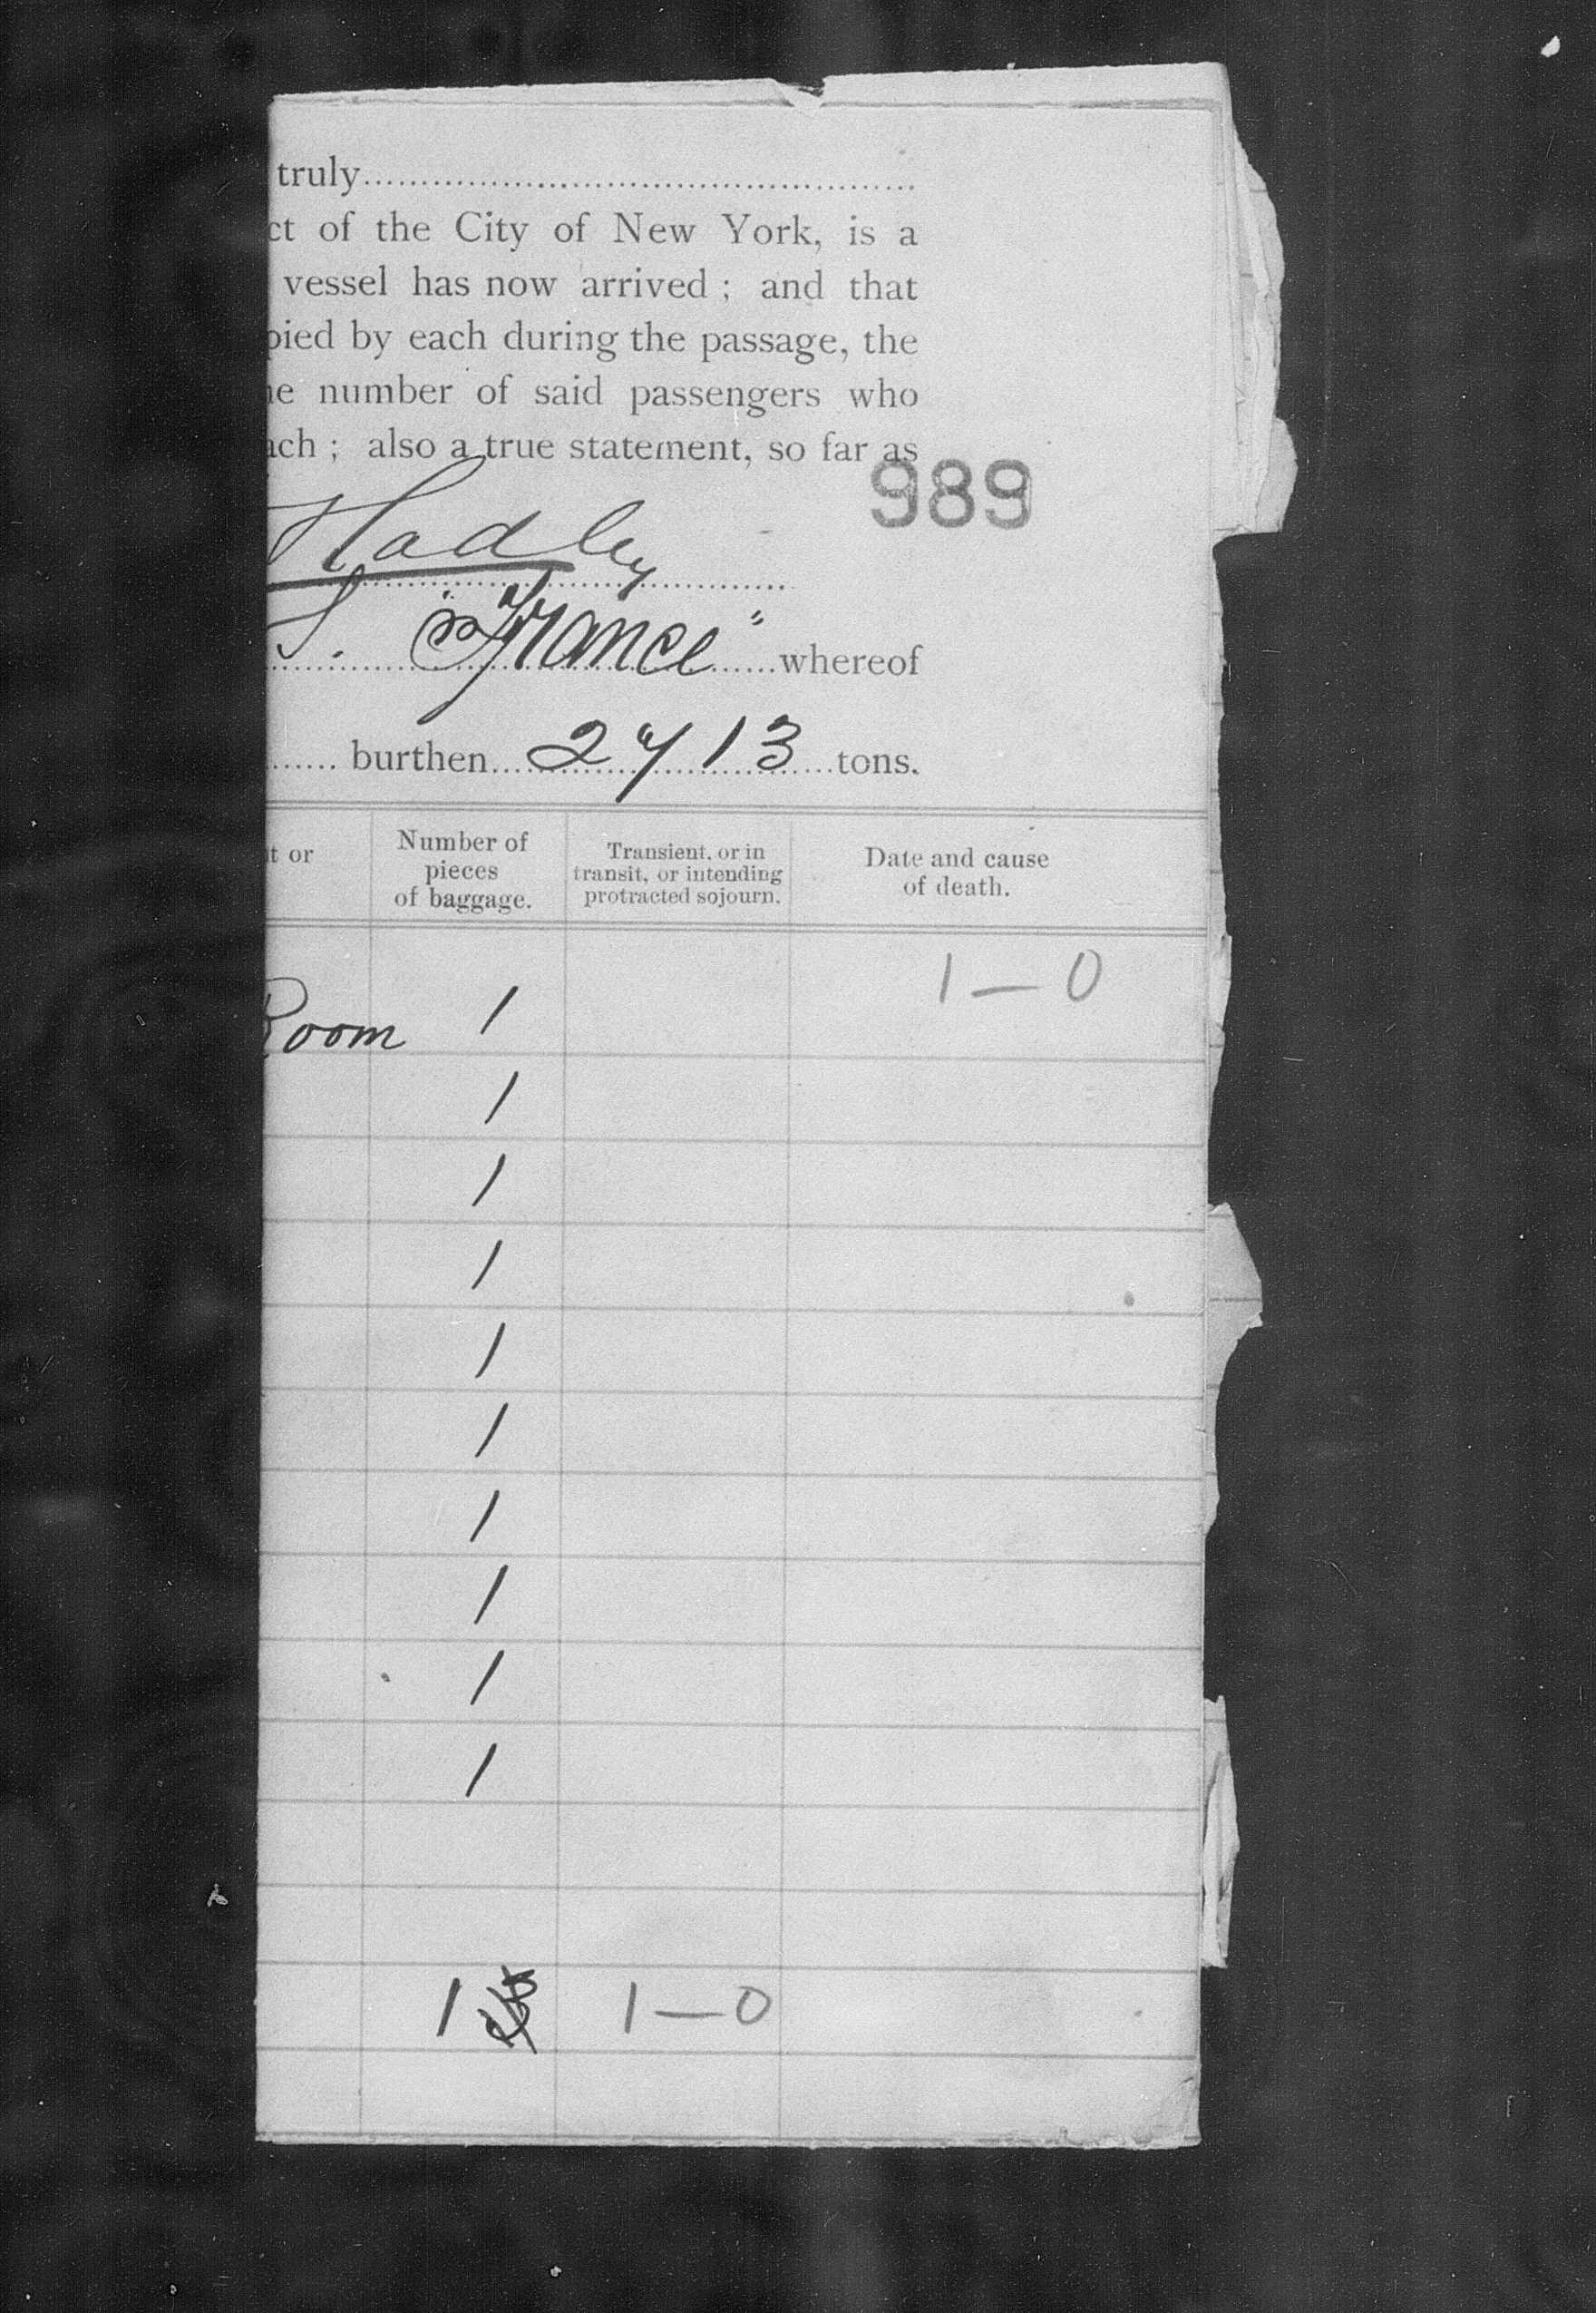 truly
ct of the City of New York, is a
vessel has now arrived ; and that
pied by each during the passage, the
ie number of said passengers who
ach ; also a true statement, so far as
989
Hadley
S. "France" whereof
burthen 2713 tons.
t or
Number of pieces of baggage.
Transient, or in transit, or intending protracted sojourn.
Date and cause of death.
1–0
Room 1
1
1
1
1
1
1
1
1
1
1 1–0